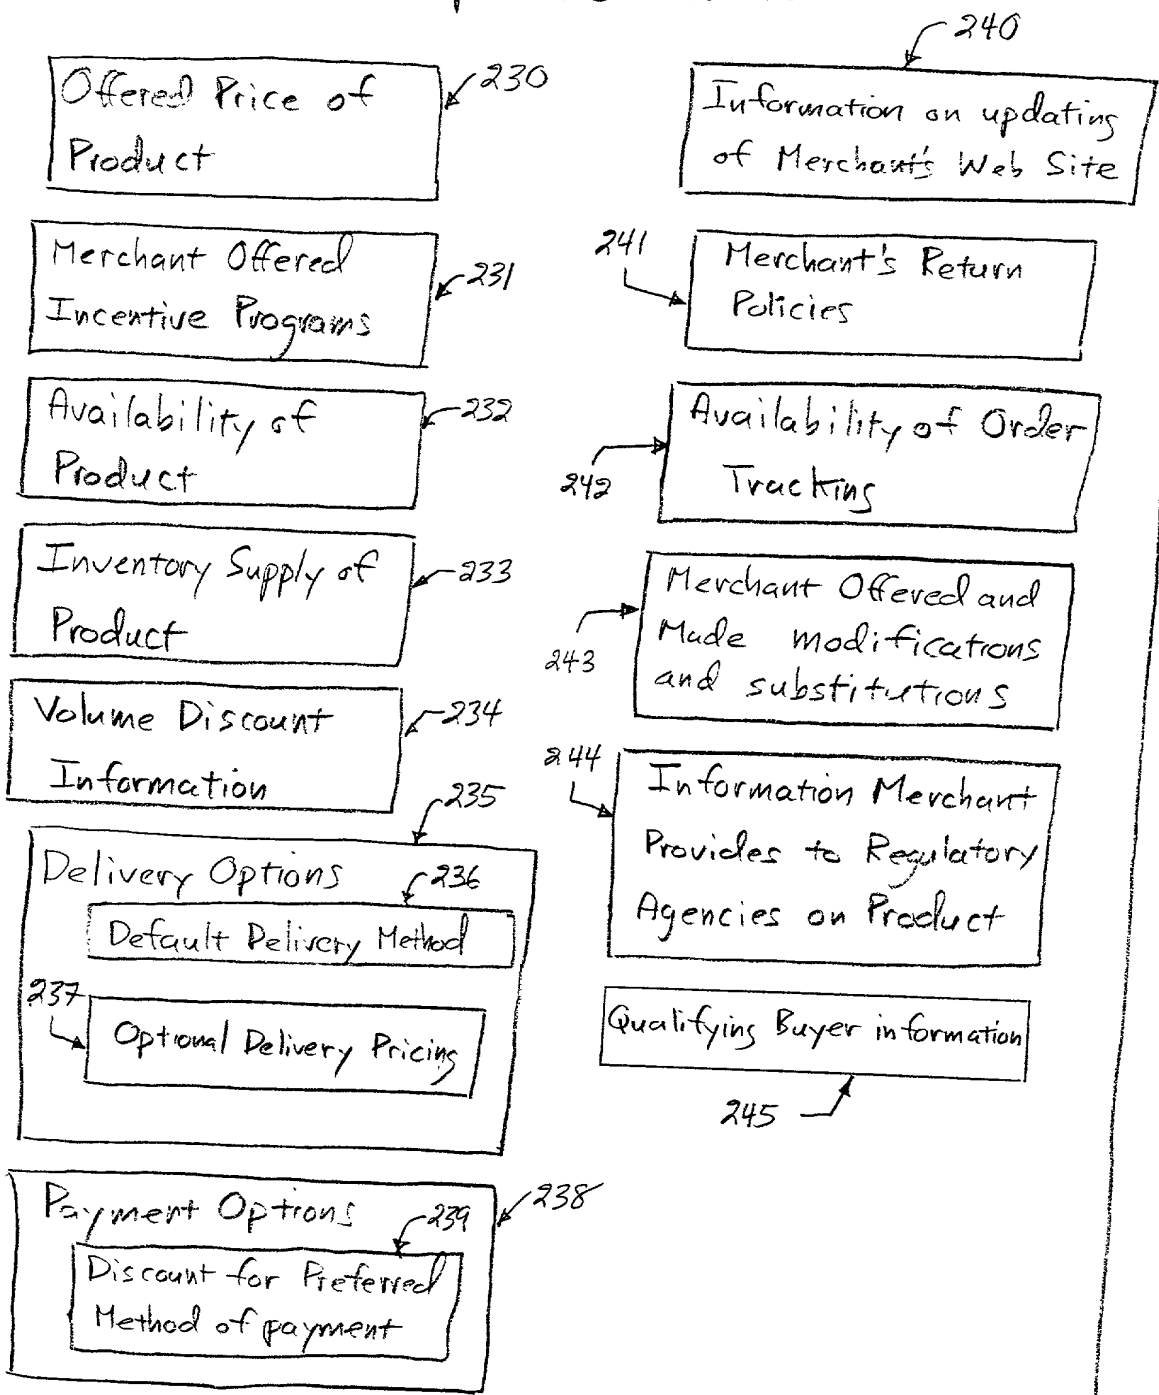 230
Offered Price of
Product
Merchant Offered
Incentive Programs
231
Availability of
Product
232
Inventory Supply of
Product
233
Volume Discount
Information
234
235
Delivery Options
236
Default Delivery Method
237
Optional Delivery Pricing
Payment Options
238
239
Discount for Preferred
Method of payment
240
Information on updating
of Merchant's Web Site
241
Merchant's Return
Policies
Availability of Order
Tracking
242
Merchant Offered and
Made modifications
and substitutions
243
244
Information Merchant
Provides to Regulatory
Agencies on Product
Qualifying Buyer information
245